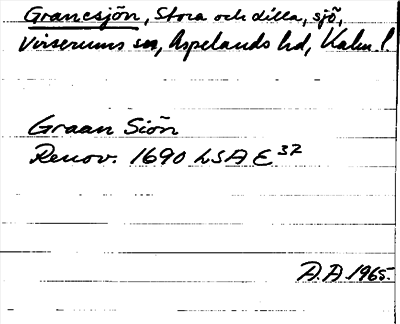 Granesjön, Stora och Lilla, sjö,
Virserums sn, Aspelands hd, Kalm. l.
Graan Siön
Renov. 1690 LSA E 32
A.A. 1965.